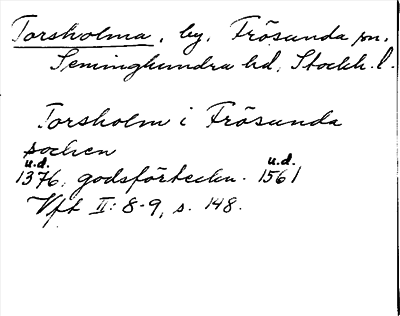 Torsholma, by, Frösunda sn,
Seminghundra hd, Stockh. l.
Torsholm i Frösunda
socken
u.d. u.d.
1376. godsförteckn. 1561
Vft II: 8-9, s. 148.